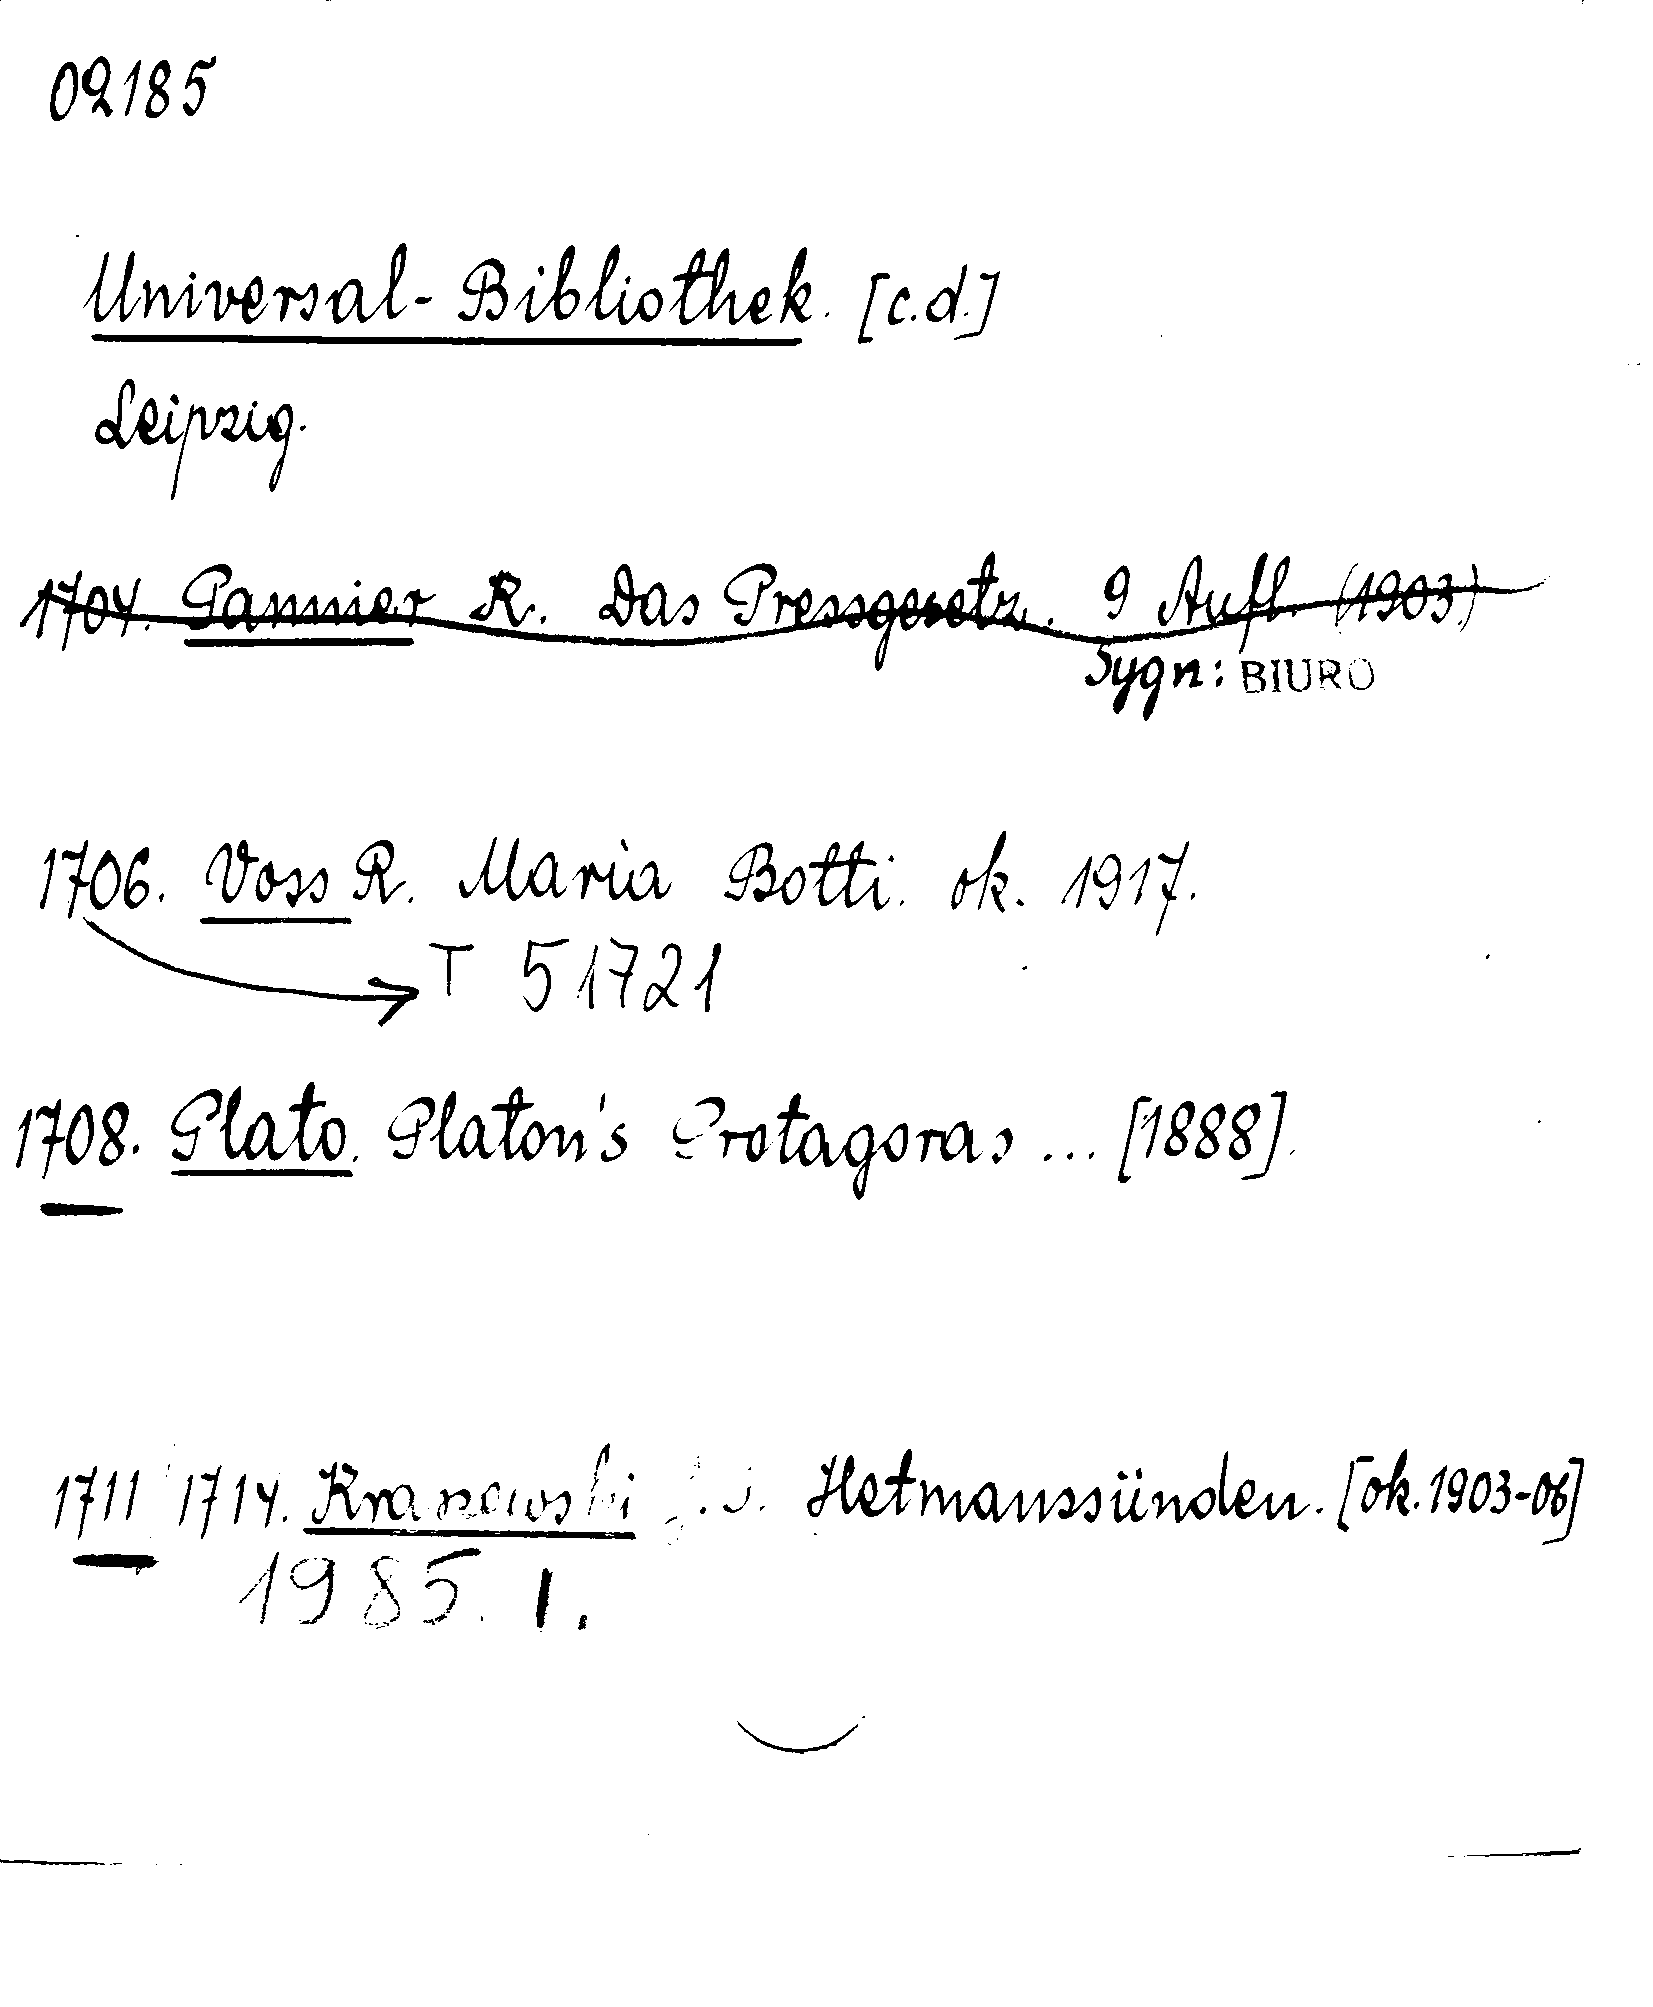 02185
Universal-Bibliothek. [c.d.]
Leipzig.
1704. Pannier R. Das Pressgesetz. 9 Aufl. (1903.)
Sygn: BIURO
1706. Voss R. Maria Botti. ok. 1917.
T 51721
1708. Plato. Platon's Protagoras ... [1888].
1711 1714. Kraszewski Hetmanssünden. [ok. 1903-06]
1985. I.